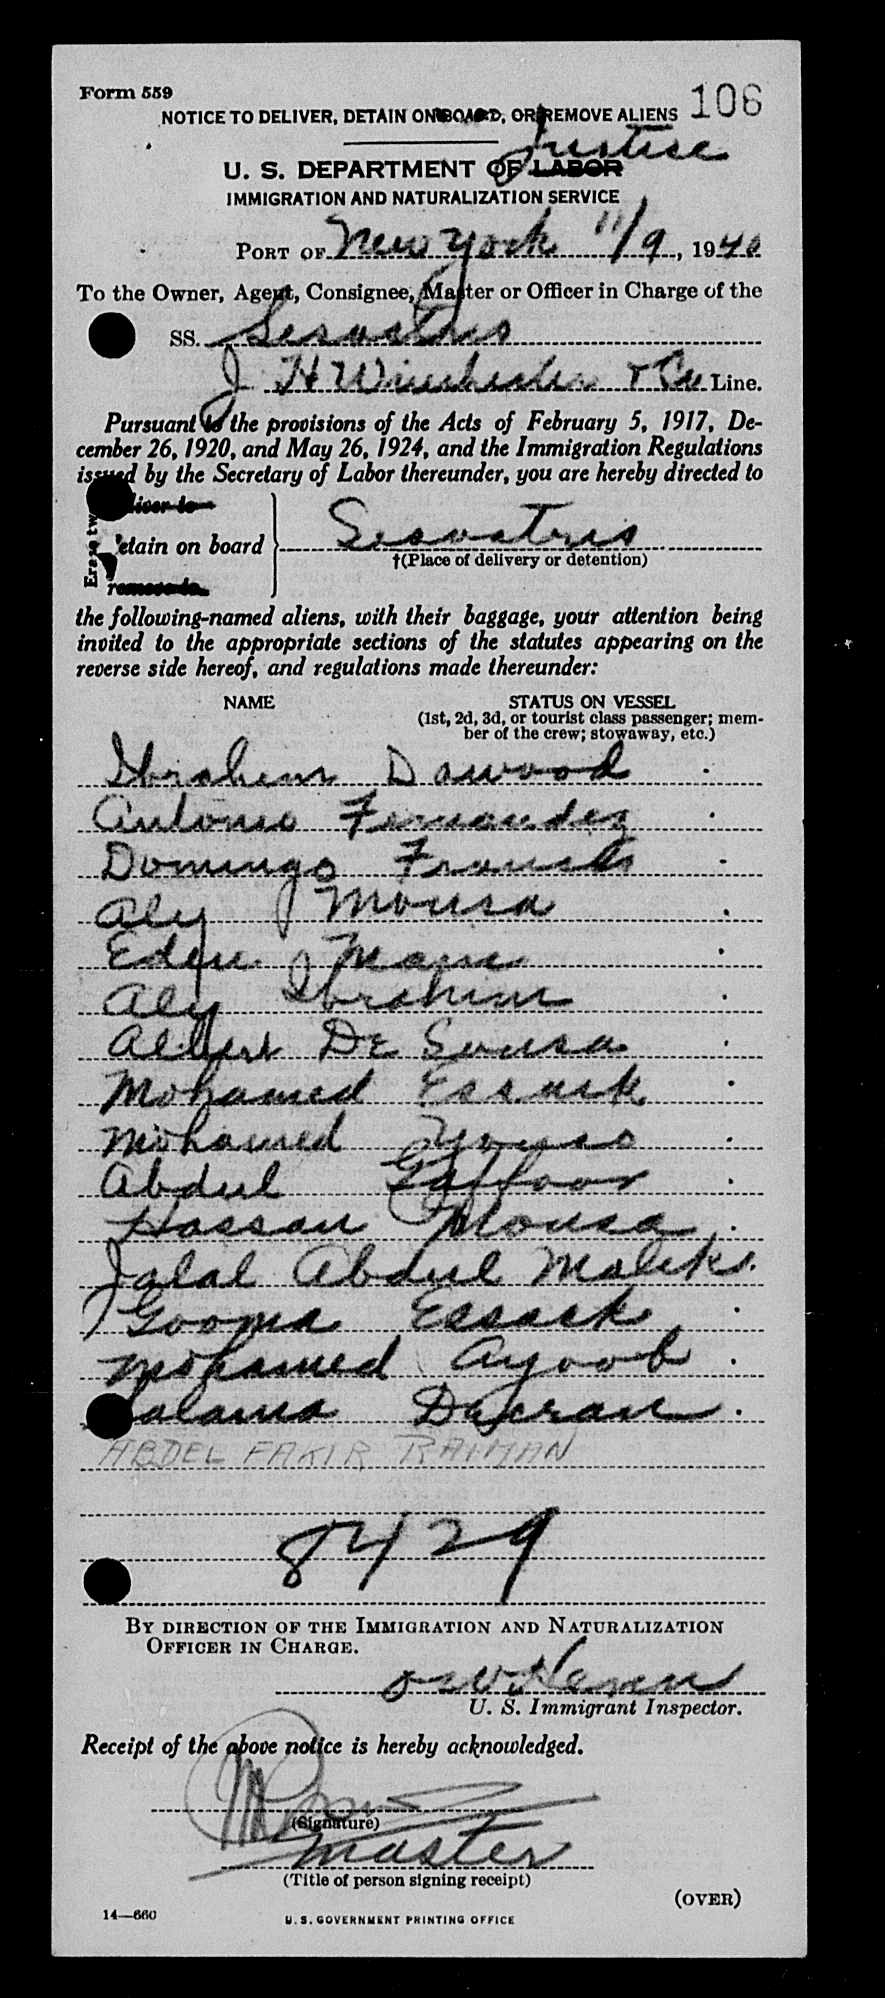 Form 559
106
NOTICE TO DELIVER, DETAIN ON BOARD, OR REMOVE ALIENS
Justice
U. S. DEPARTMENT OF LABOR
IMMIGRATION AND NATURALIZATION SERVICE
PORT OF New York 11/9, 1940
To the Owner, Agent, Consignee, Master or Officer in Charge of the
SS. Sesostris
J H Winchester & Co Line.
Pursuant to the provisions of the Acts of February 5, 1917, De-
cember 26, 1920, and May 26, 1924, and the Immigration Regulations
issued by the Secretary of Labor thereunder, you are hereby directed to
Erase tw
liver to
etain on board
remove to
Sesostris
†(Place of delivery or detention)
the following-named aliens, with their baggage, your attention being
invited to the appropriate sections of the statutes appearing on the
reverse side hereof, and regulations made thereunder:
NAME
STATUS ON VESSEL
(1st, 2d, 3d, or tourist class passenger; mem-
ber of the crew; stowaway, etc.)
Ibrahem Dawood
Antonio Fernandez
Domingo Francis
Aly Mousa
Eden Mani
Aly Ibrahim
Albert De Sousa
Mohamed Essack
Mohamed
Abdul Gaffoor
Hassan Mousa
Jalal Abdul Malek
Gooma Essack
Mohamed Ayoob
alama
ABDEL FAKIR RAHMAN
8429
BY DIRECTION OF THE IMMIGRATION AND NATURALIZATION
OFFICER IN CHARGE.
U. S. Immigrant Inspector.
Receipt of the above notice is hereby acknowledged.
(Signature)
Master
(Title of person signing receipt)
(OVER)
14—660
U. S. GOVERNMENT PRINTING OFFICE